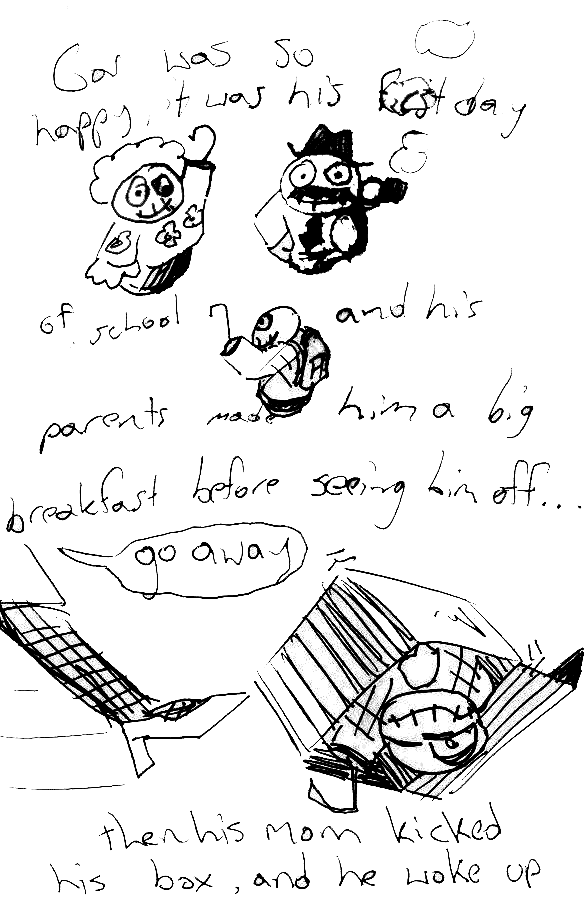 Gar was so
happy, it was his first day
of school and his
parents made him a big
breakfast before seeing him off...
go away
then his mom kicked
his box, and he woke up